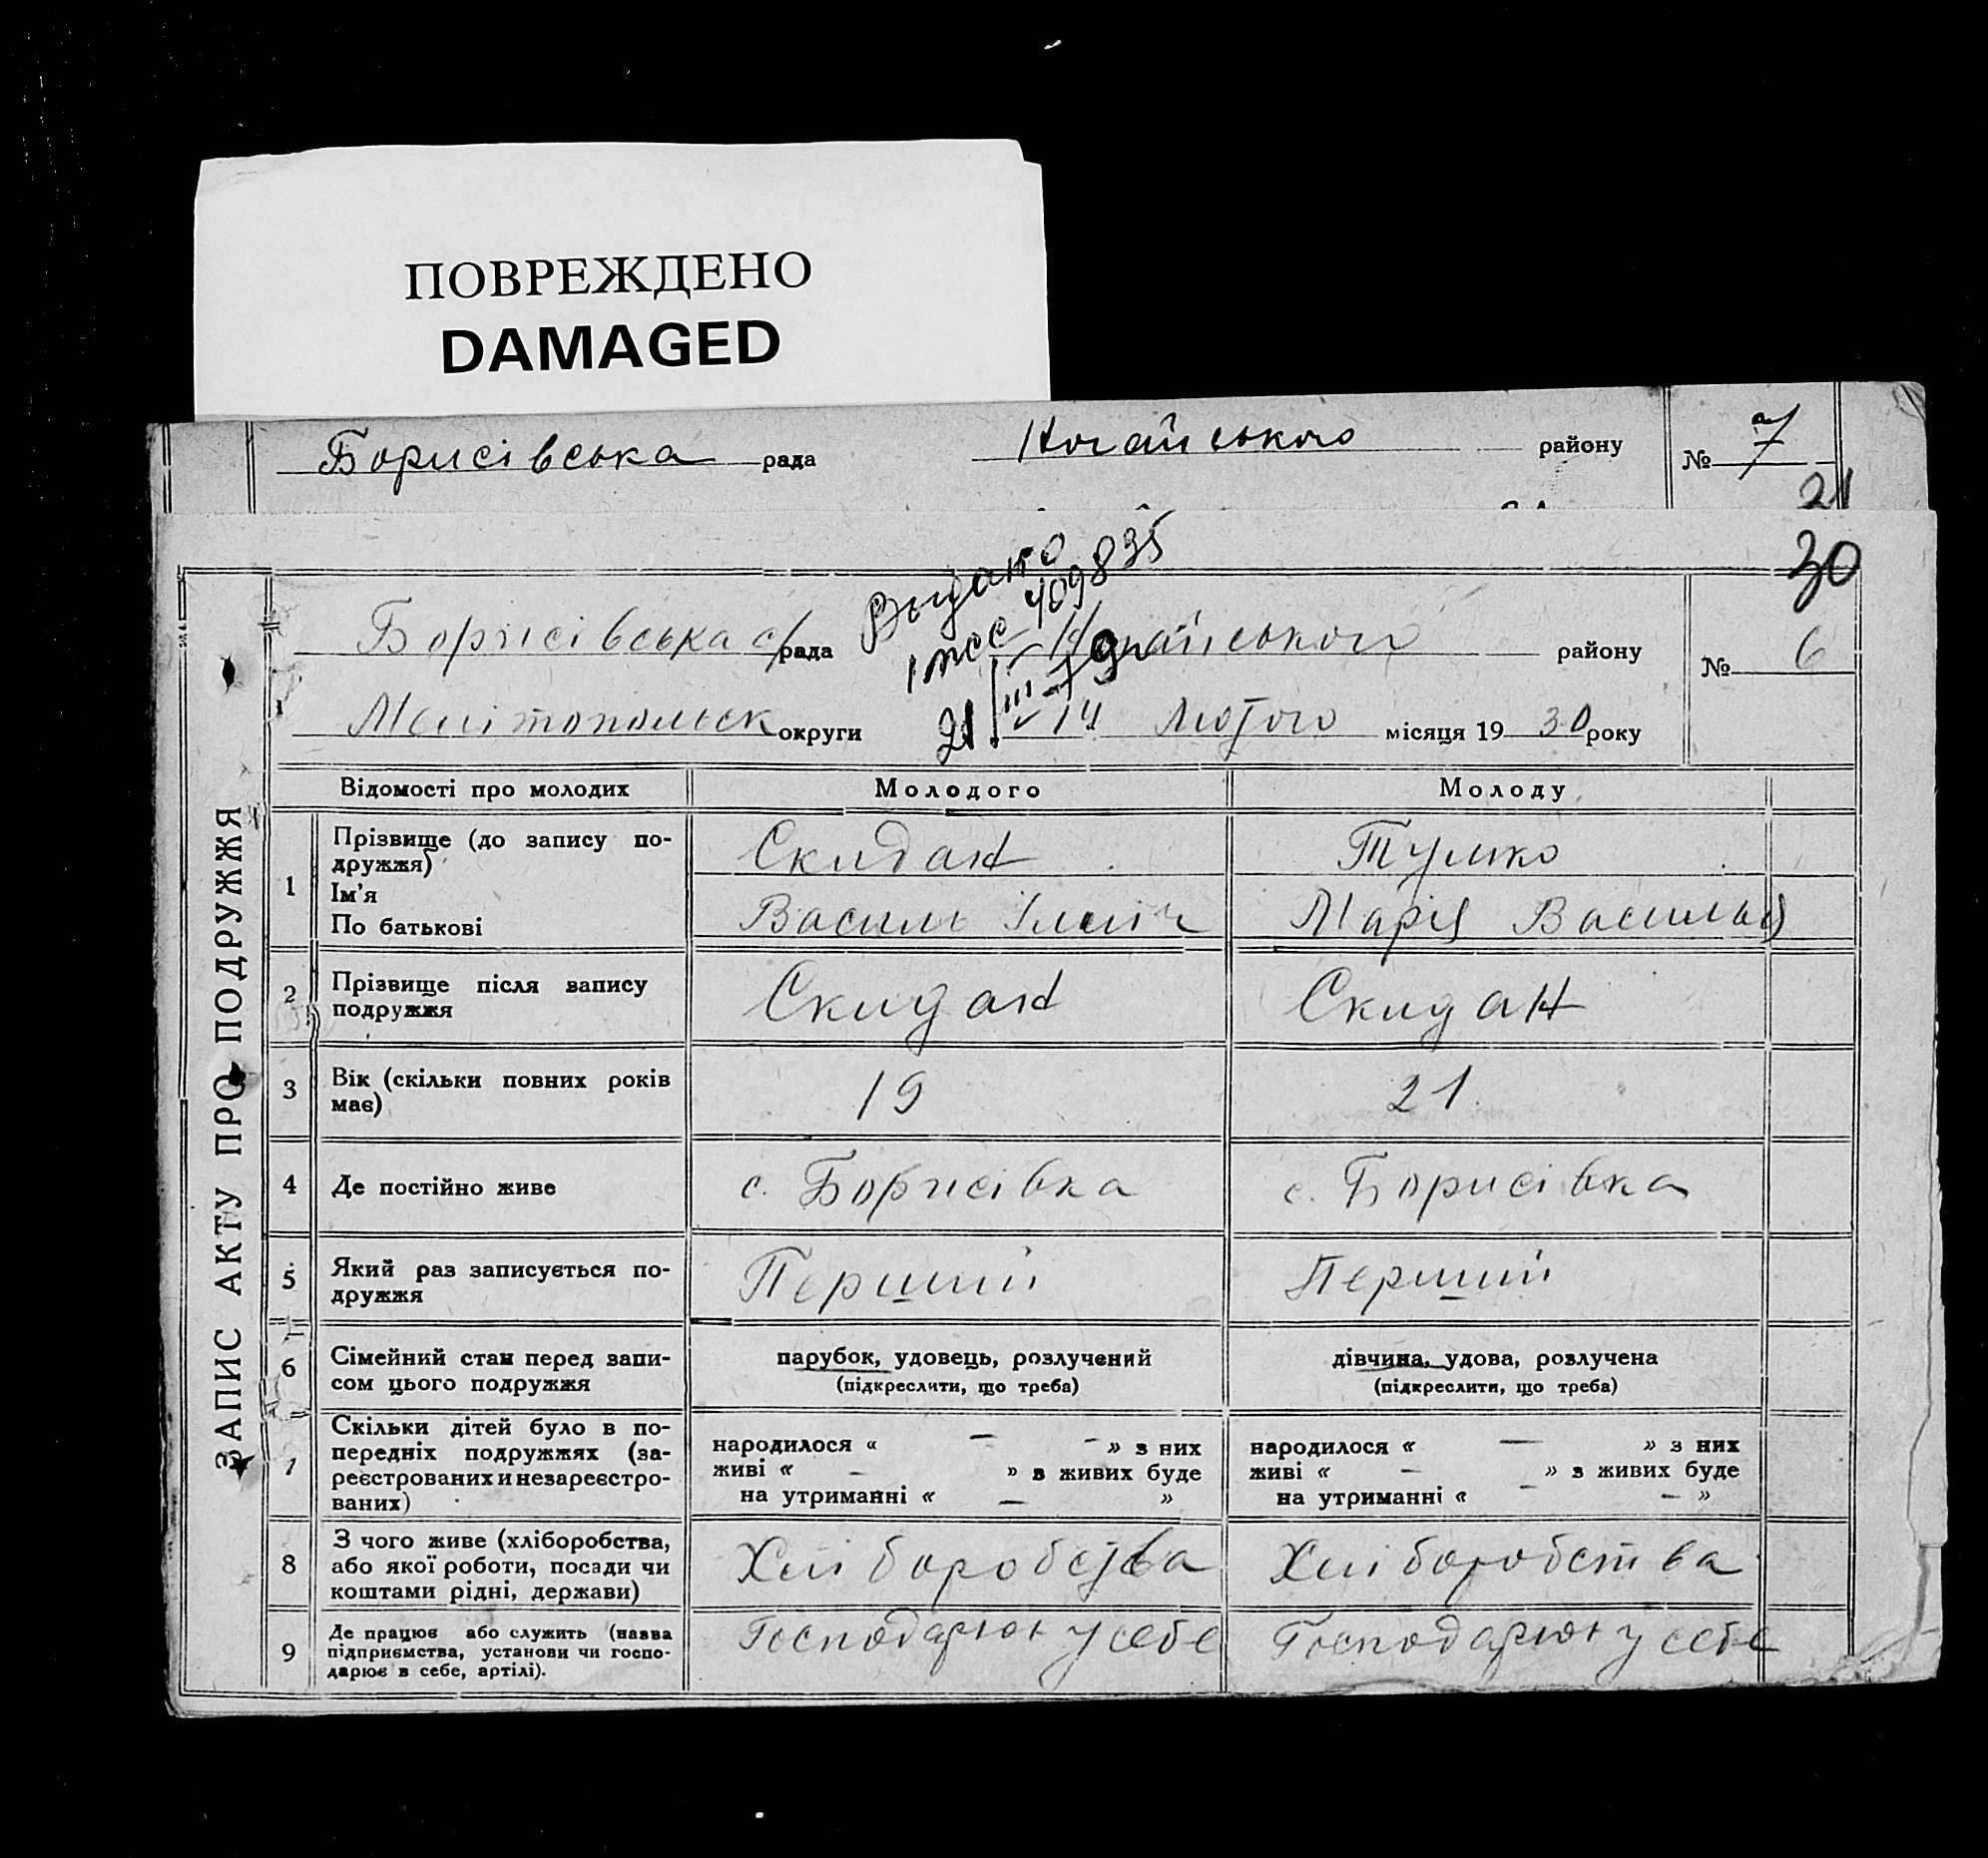 ПОВРЕЖДЕНО
DAMAGED
Борисівська рада Ногайського району № 7
21
30
Видано
409835
Борисівська с/рада Ногайського району № 6
21/III-79
Мелітопольск округи 14 Лютого місяця 1930 року
ЗАПИС АКТУ ПРО ПОДРУЖЖЯ
Відомості про молодих Молодого Молоду
1 Прізвище (до запису по-
дружжя) Скидан Тулико
Ім'я
По батькові Василь Ілліч Марія Васильв
2 Прізвище після запису
подружжя Скидан Скидан
3 Вік (скільки повних років
має) 19 21
4 Де постійно живе с. Борисівка с. Борисівка
5 Який раз записується по-
дружжя Перший Перший
6 Сімейний стан перед запи-
сом цього подружжя
парубок, удовець, розлучений дівчина, удова, розлучена
(підкреслити, що треба) (підкреслити, що треба)
7 Скільки дітей було в по-
передніх подружжях (за-
реєстрованих и незареєстро-
ваних)
народилося « — - » з них народилося « — » з них
живі « - » з живих буде живі « — » з живих буде
на утриманні « — » на утриманні « - — »
8 З чого живе (хліборобства,
або якої роботи, посади чи
коштами рідні, держави)
Хліборобства Хліборобства
9 Де працює або служить (назва
підприємства, установи чи госпо-
дарює в себе, артілі).
Господарюю у себе Господарюю у себе